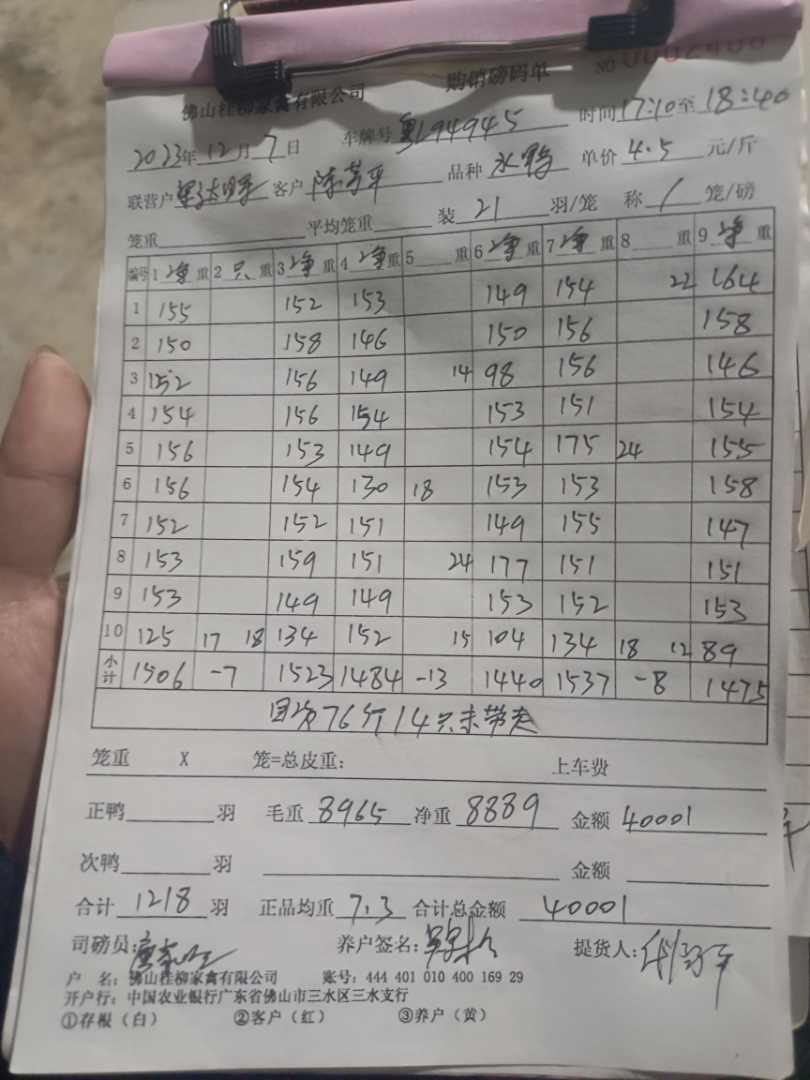 佛山桂柳家禽有限公司 购销磅码单 NO 0002400
2023年12月7日 车牌号粤L94945 时间17:10至18:40
联营户 客户陈芳平 品种水鸭 单价4.5元/斤
笼重 平均笼重 装21羽/笼 称1笼/磅
编号 1净重 2只重 3净重 4净重 5重 6净重 7净重 8重 9净重
1 155 152 153 149 154 22 164
2 150 158 146 150 156 158
3 152 156 149 14 98 156 146
4 154 156 154 153 151 154
5 156 153 149 154 175 24 155
6 156 154 130 18 153 153 158
7 152 152 151 149 155 147
8 153 159 151 24 177 151 151
9 153 149 149 153 152 153
10 125 17 18 134 152 15 104 134 18 12 89
小计 1506 -7 1523 1484 -13 1440 1537 -8 1475
因次76斤14只未带走
笼重 X 笼=总皮重: 上车费
正鸭 羽 毛重8965 净重8889 金额40001
次鸭 羽 金额
合计1218羽 正品均重7.3 合计总金额40001
司磅员: 养户签名: 提货人:
户 名: 佛山桂柳家禽有限公司 账号: 444 401 010 400 169 29
开户行: 中国农业银行广东省佛山市三水区三水支行
①存根（白） ②客户（红） ③养户（黄）